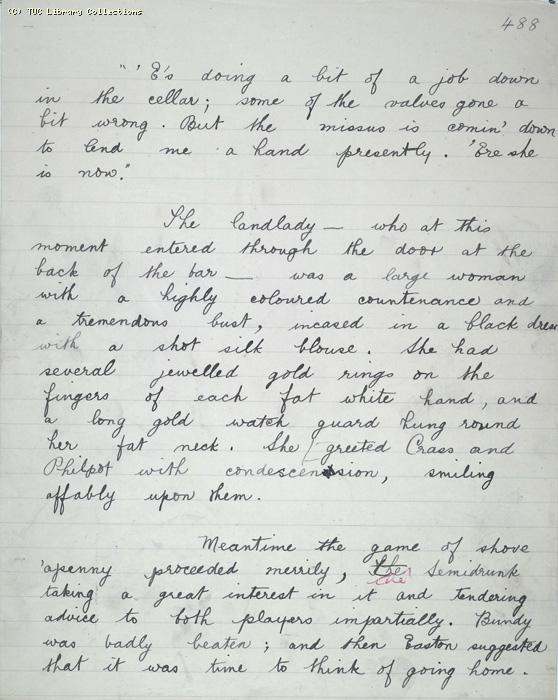 (C) TUC Library Collections
488
"'E's doing a bit of a job down
in the cellar; some of the valves gone a
bit wrong. But the missus is comin' down
to lend me a hand presently. 'Ere she
is now."
The landlady — who at this
moment entered through the door at the
back of the bar — was a large woman
with a highly coloured countenance and
a tremendous bust, incased in a black dress
with a shot silk blouse. She had
several jewelled gold rings on the
fingers of each fat white hand, and
a long gold watch guard hung round
her fat neck. She greeted Crass and
Philpot with condescension, smiling
affably upon them.
Meantime the game of shove
'apenny proceeded merrily, the Semidrunk
taking a great interest in it and tendering
advice to both players impartially. Bundy
was badly beaten; and then Easton suggested
that it was time to think of going home.